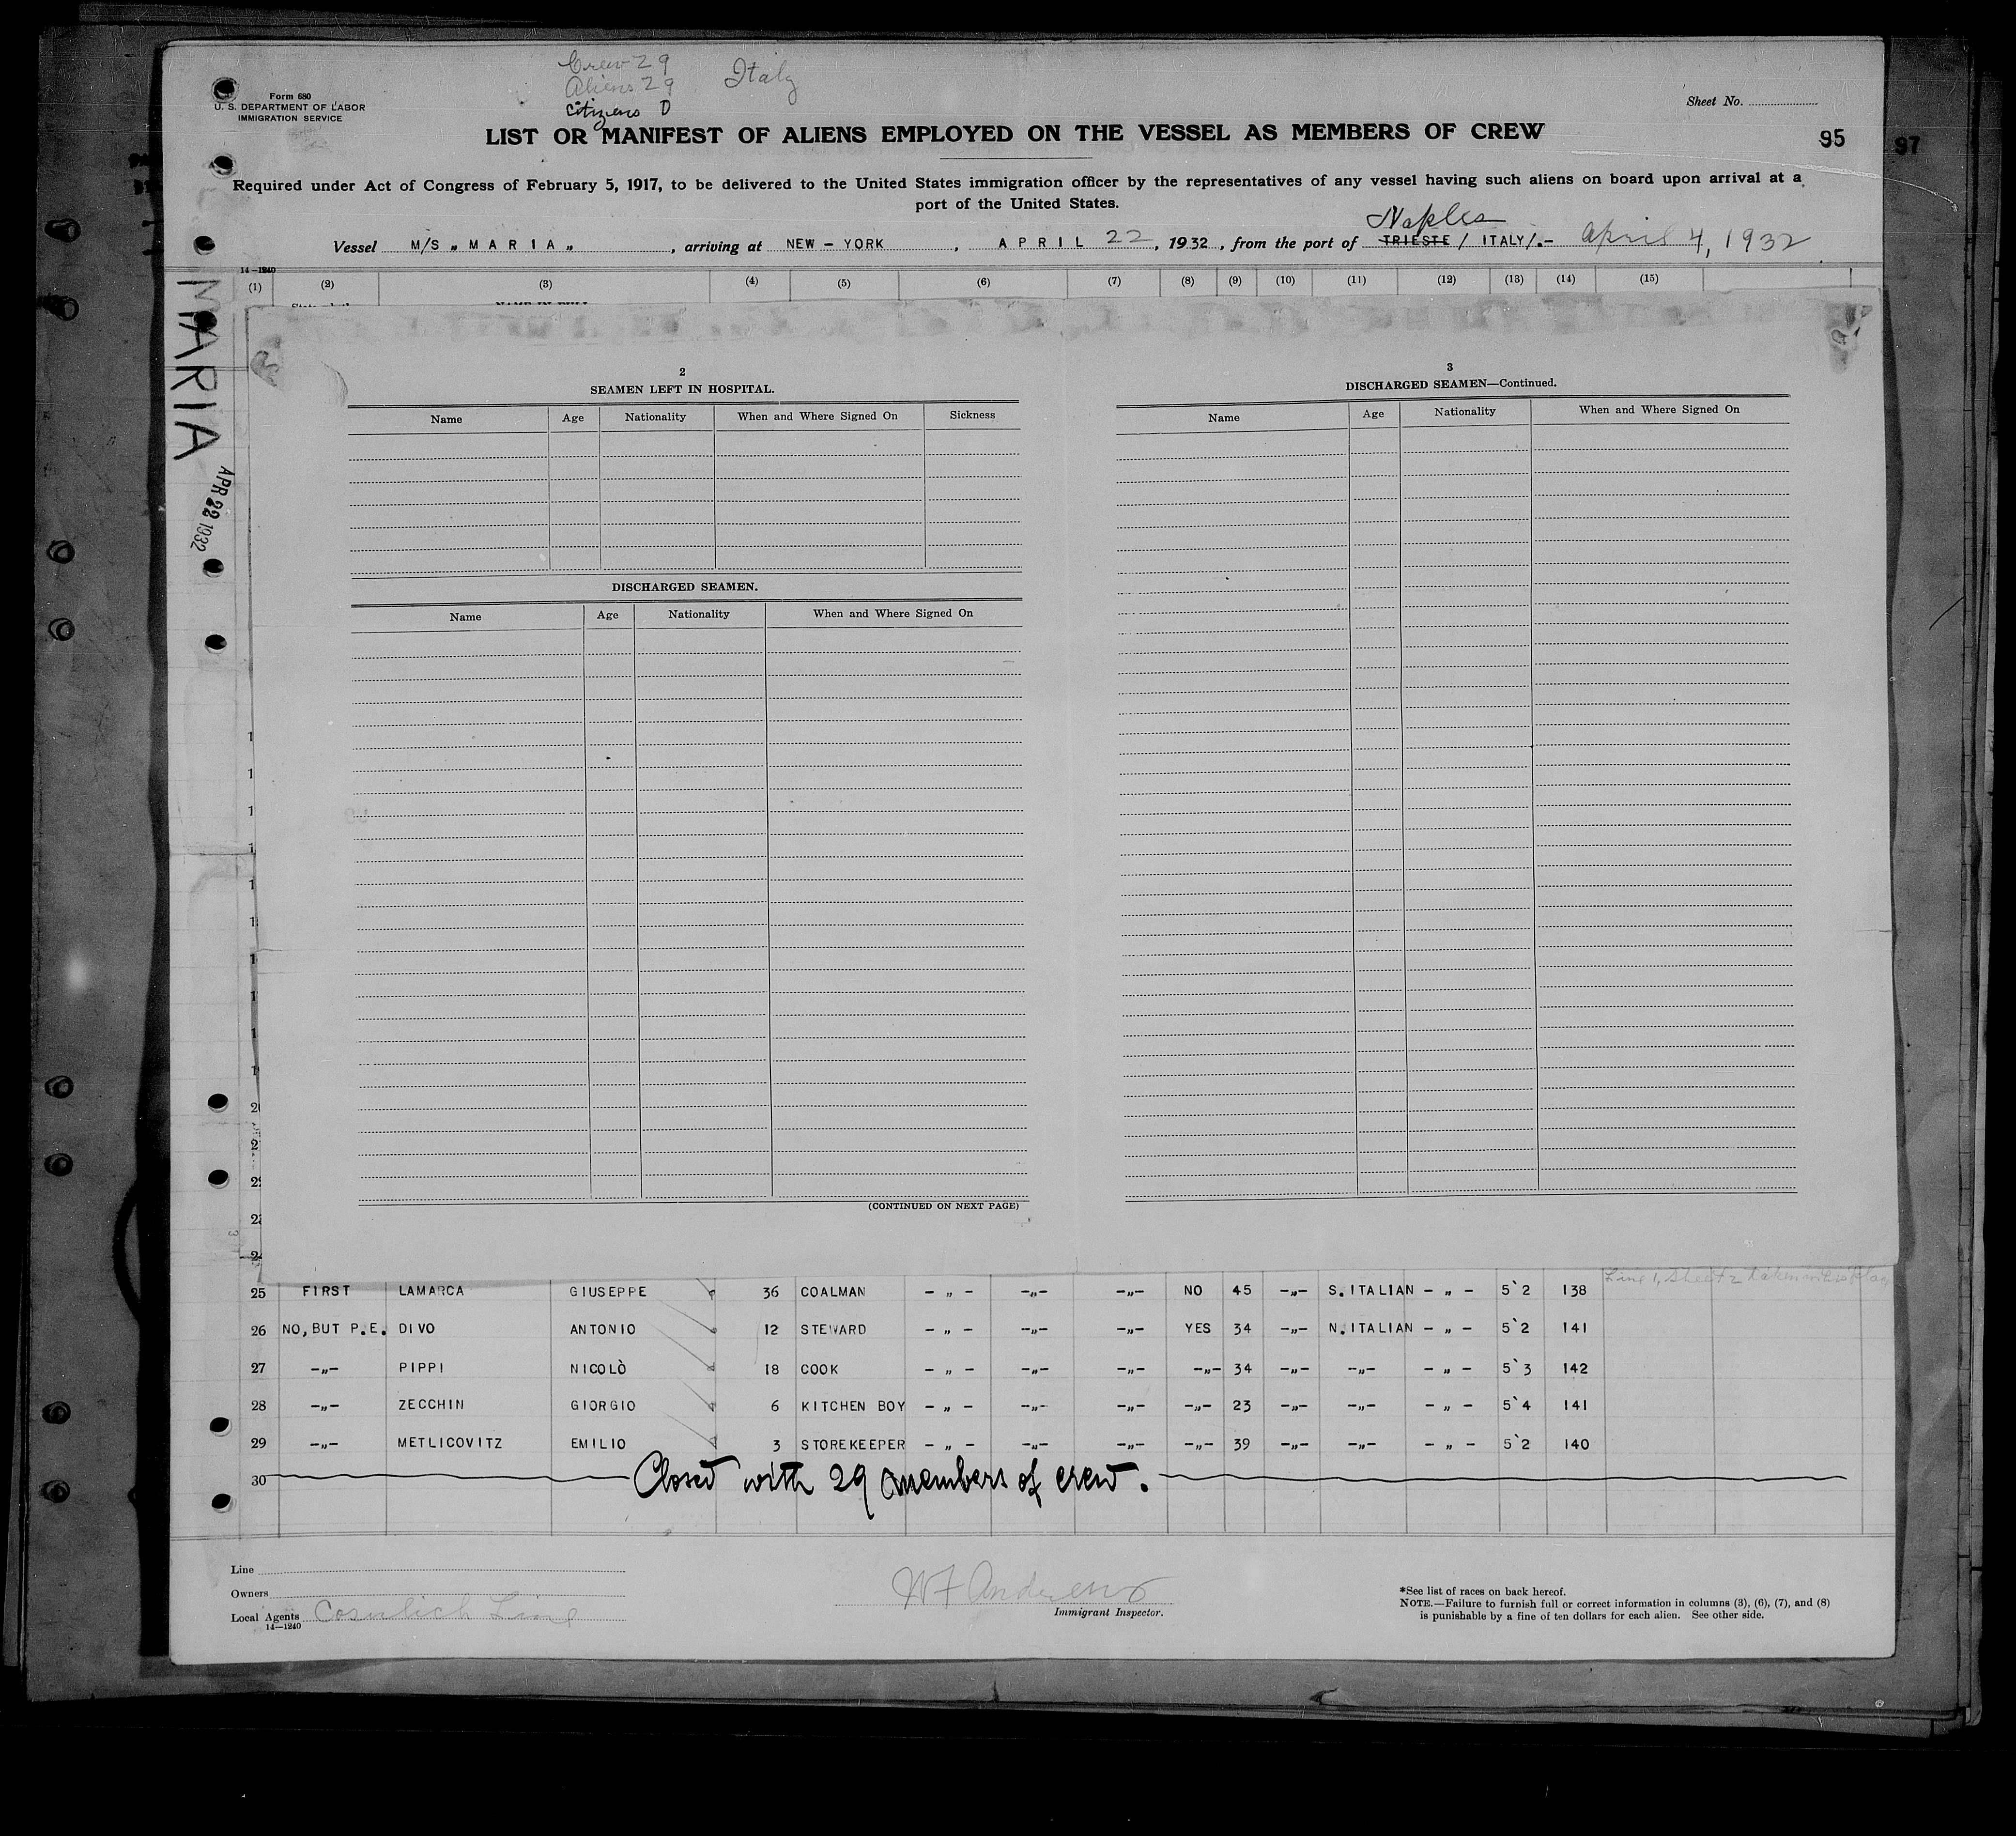 Crew 29
Aliens 29 Italy
Citizens 0
Form 680
U. S. DEPARTMENT OF LABOR
IMMIGRATION SERVICE
Sheet No.
LIST OR MANIFEST OF ALIENS EMPLOYED ON THE VESSEL AS MEMBERS OF CREW
95 97
Required under Act of Congress of February 5, 1917, to be delivered to the United States immigration officer by the representatives of any vessel having such aliens on board upon arrival at a
port of the United States.
Naples
Vessel M/S „ M A R I A „ , arriving at NEW – YORK , A P R I L 22 , 1932 , from the port of TRIESTE / ITALY/.– April 4, 1932
14—1240
(1) (2) (3) (4) (5) (6) (7) (8) (9) (10) (11) (12) (13) (14) (15)
MARIA
APR 22 1932
2
SEAMEN LEFT IN HOSPITAL.
Name Age Nationality When and Where Signed On Sickness
DISCHARGED SEAMEN.
Name Age Nationality When and Where Signed On
(CONTINUED ON NEXT PAGE)
3
DISCHARGED SEAMEN—Continued.
Name Age Nationality When and Where Signed On
Line 1, Sheet 2 taken
25 FIRST LAMARCA GIUSEPPE 36 COALMAN – „ – –„– –„– NO 45 –„– S.ITALIAN – „ – 5`2 138
26 NO,BUT P.E. DIVO ANTONIO 12 STEWARD – „ – –„– –„– YES 34 –„– N.ITALIAN – „ – 5`2 141
27 –„– PIPPI NICOLÒ 18 COOK – „ – –„– –„– –„– 34 –„– –„– – „ – 5`3 142
28 –„– ZECCHIN GIORGIO 6 KITCHEN BOY – „ – –„– –„– –„– 23 –„– –„– – „ – 5`4 141
29 –„– METLICOVITZ EMILIO 3 STOREKEEPER – „ – –„– –„– –„– 39 –„– –„– – „ – 5`2 140
30 Closed with 29 members of crew.
Line
Owners
Local Agents Cosulich Line
14—1240
W F Andrews
Immigrant Inspector.
*See list of races on back hereof.
NOTE.—Failure to furnish full or correct information in columns (3), (6), (7), and (8)
is punishable by a fine of ten dollars for each alien. See other side.